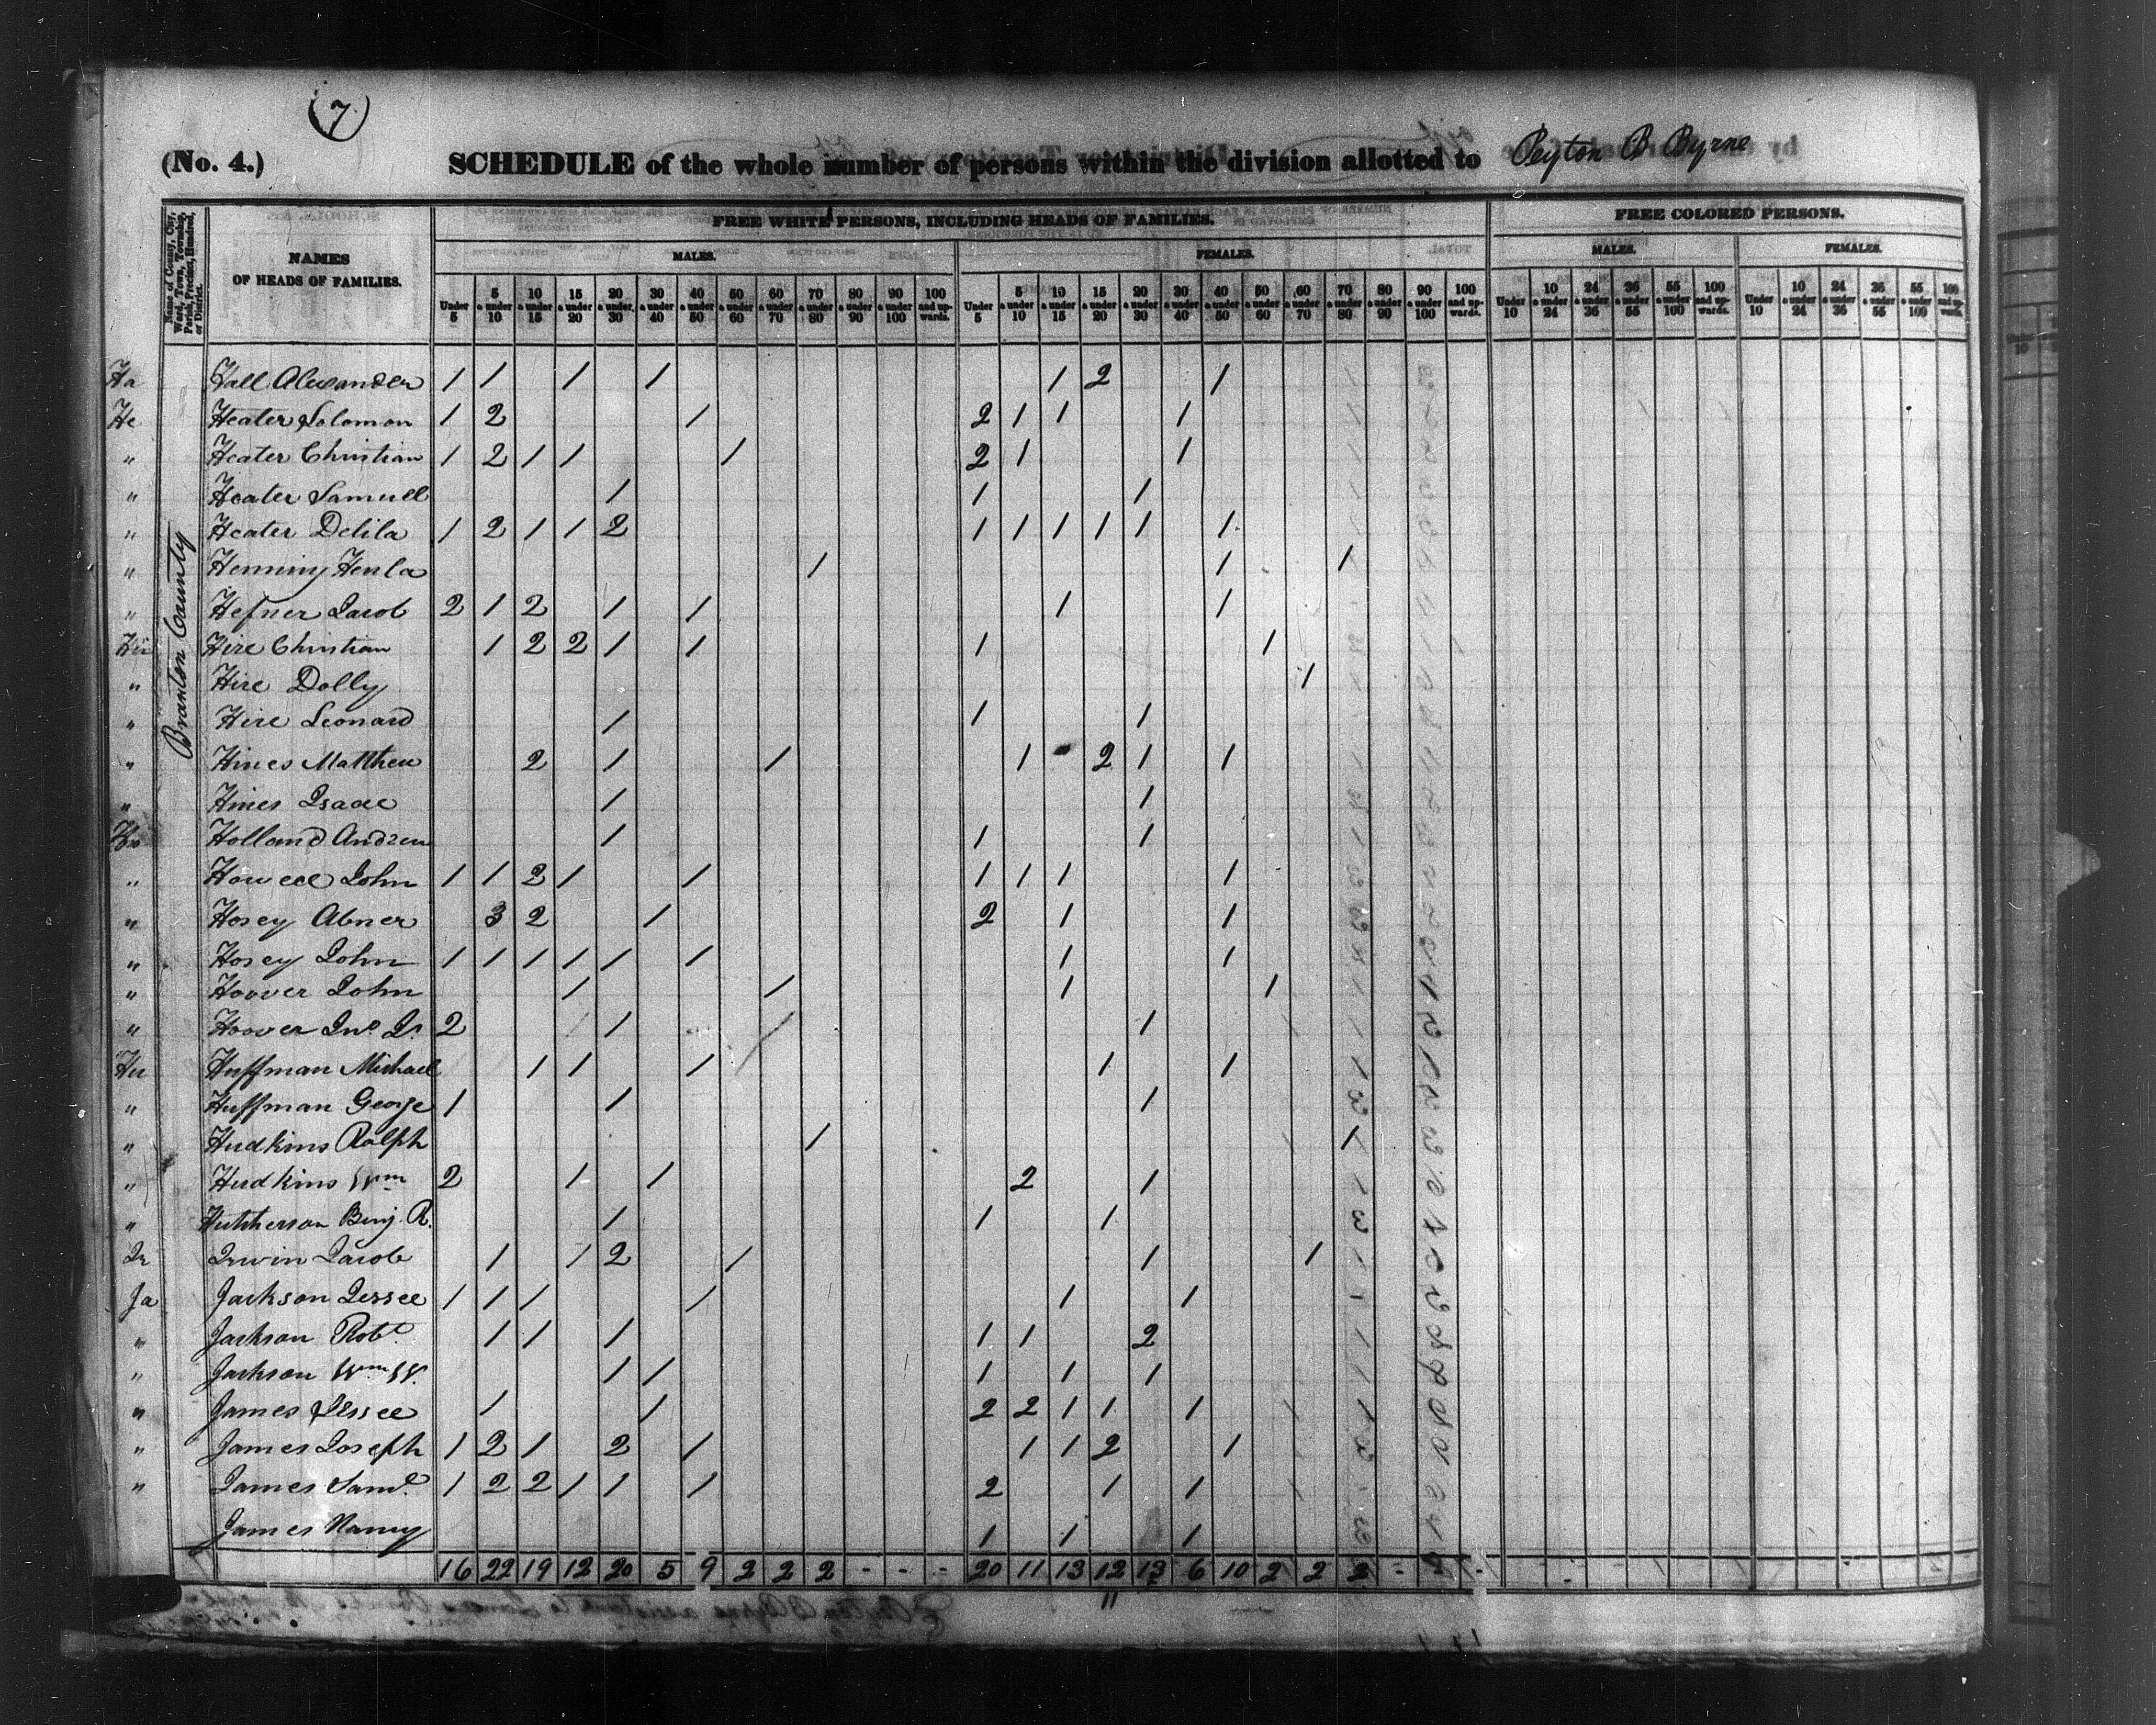 (7)
(No. 4.) SCHEDULE of the whole number of persons within the division allotted to Peyton B Byrne
Name of County, City, Ward, Town, Township, Parish, Precinct, Hundred, or District.
NAMES OF HEADS OF FAMILIES.
FREE WHITE PERSONS, INCLUDING HEADS OF FAMILIES.
FREE COLORED PERSONS.
MALES. FEMALES. MALES. FEMALES.
Under 5 | 5 & under 10 | 10 & under 15 | 15 & under 20 | 20 & under 30 | 30 & under 40 | 40 & under 50 | 50 & under 60 | 60 & under 70 | 70 & under 80 | 80 & under 90 | 90 & under 100 | 100 and upwards. | Under 5 | 5 & under 10 | 10 & under 15 | 15 & under 20 | 20 & under 30 | 30 & under 40 | 40 & under 50 | 50 & under 60 | 60 & under 70 | 70 & under 80 | 80 & under 90 | 90 & under 100 | 100 and upwards. | Under 10 | 10 & under 24 | 24 & under 36 | 36 & under 55 | 55 & under 100 | 100 and upwards. | Under 10 | 10 & under 24 | 24 & under 36 | 36 & under 55 | 55 & under 100 | 100 and upwards.
Braxton County
Ha Hall Alexander 1 1 1 1 1 2 1
He Heater Solomon 1 2 1 2 1 1 1
" Heater Christian 1 2 1 1 1 2 1 1
" Heater Samuel 1 1 1
" Heater Delila 1 2 1 1 2 1 1 1 1 1 1
" 1 1 1
" Hefner Jacob 2 1 2 1 1 1 1
Hi Hire Christian 1 2 2 1 1 1 1
" Hire Dolly 1
" Hire Leonard 1 1 1
" Hines Matthew 2 1 1 1 2 1 1
" Hines Isaac 1 1
Ho Holland Andrew 1 1 1
" Howell John 1 1 2 1 1 1 1 1 1
" Hosey Abner 3 2 1 2 1 1
" Hosey John 1 1 1 1 1 1 1 1
" Hoover John 1 1 1 1
" Hoover Jno Jr 2 1 1
Hu Huffman Michael 1 1 1 1 1
" Huffman George 1 1 1
" Hudkins Ralph 1 1
" Hudkins Wm 2 1 1 2 1
" Hutcherson Benj. R. 1 1 1
Ir Irwin Jacob 1 1 2 1 1 1
Ja Jackson Jessee 1 1 1 1 1 1
" Jackson Robt. 1 1 1 1 1 2
" Jackson Wm W. 1 1 1 1 1
" James Jessee 1 1 2 2 1 1 1
" James Joseph 1 2 1 2 1 1 1 2 1
" James Saml. 1 2 2 1 1 1 2 1 1
James Nancy 1 1 1
16 22 19 12 20 5 9 2 2 2 - - - 20 11 13 12 13 6 10 2 2 2 - - -
11